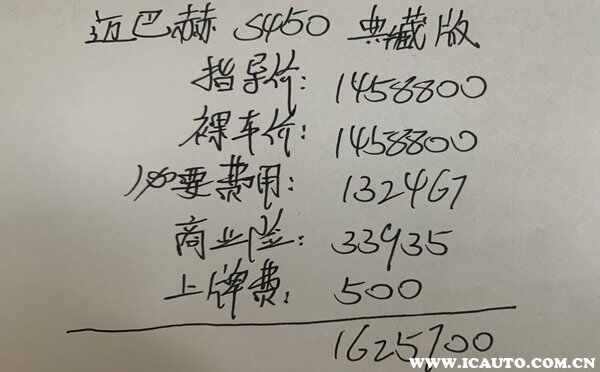 迈巴赫 S450 典藏版
指导价: 1458800
裸车价: 1458800
必要费用: 132467
商业险: 33935
上牌费: 500
1625700
WWW.ICAUTO.COM.CN